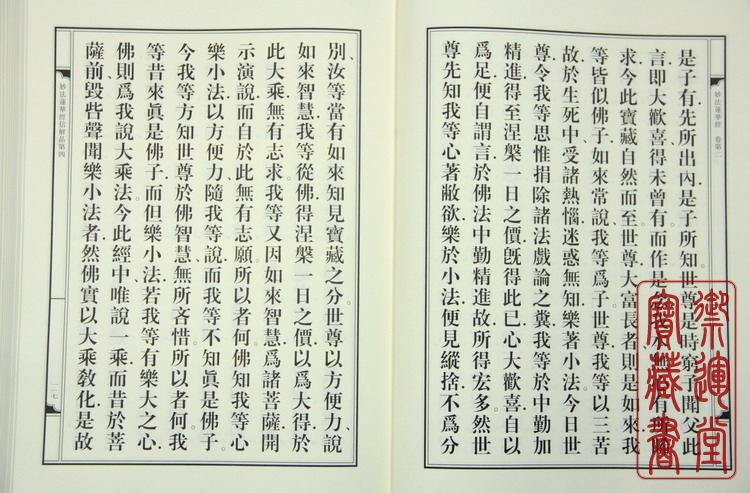 妙法蓮華經 卷第二
是子有先所出內是子所知世尊是時窮子聞父此
言即大歡喜得未曾有。而作是念我本無心有所
求今此寶藏自然而至。世尊大富長者則是如來我
等皆似佛子。如來常說我等爲子。世尊我等以三苦
故於生死中、受諸熱惱迷惑無知樂著小法。今日世
尊令我等思惟捐除諸法戲論之糞。我等於中勤加
精進得至涅槃一日之價旣得此已心大歡喜自以
爲足便自謂言於佛法中勤精進故所得宏多。然世
尊先知我等心著敝欲樂於小法便見縱捨不爲分
別、汝等當有如來知見寶藏之分。世尊以方便力、說
如來智慧我等從佛得涅槃一日之價以爲大得於
此大乘無有志求。我等又因如來智慧爲諸菩薩開
示演說而自於此無有志願。所以者何。佛知我等心
樂小法以方便力、隨我等說而我等不知眞是佛子。
今我等方知世尊於佛智慧無所吝惜。所以者何。我
等昔來眞是佛子而但樂小法若我等有樂大之心
佛則爲我說大乘法。今此經中、唯說一乘而昔於菩
薩前、毀呰聲聞樂小法者然佛實以大乘敎化是故
妙法蓮華經信解品第四
一一七
運堂
寶藏書